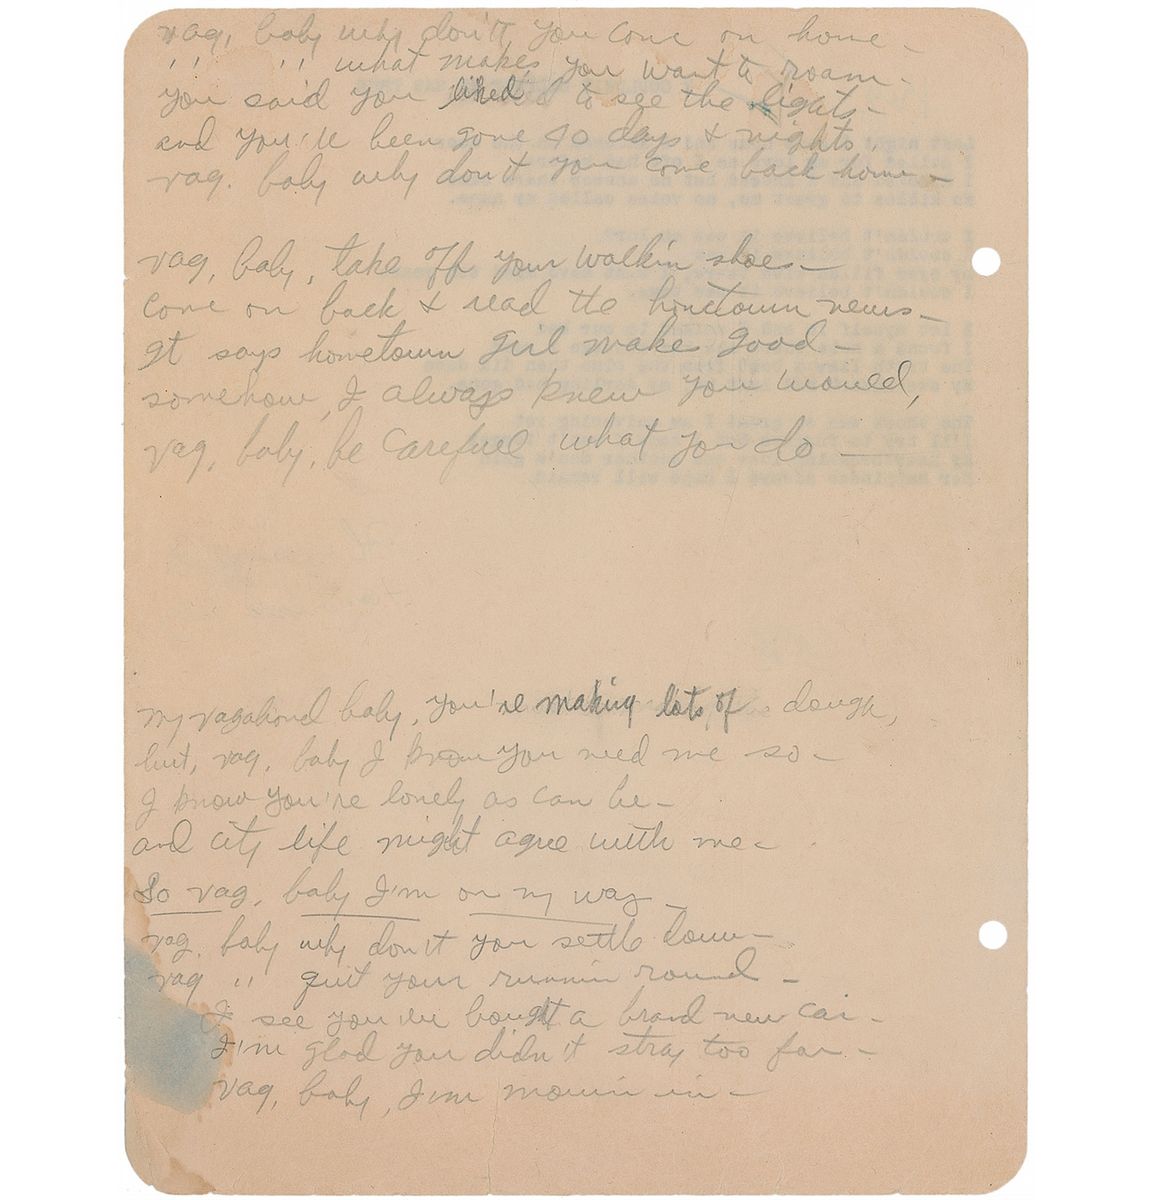 vag, baby why don't you come on home -
" " what makes you want to roam -
you said you liked to see the lights -
and you've been gone 40 days & nights
vag. baby why don't you come back home -
vag, baby, take off your walkin shoes -
come on back & read the hometown news -
It says hometown girl make good -
somehow, I always knew you would,
vag, baby, be careful what you do -
my vagabond baby, you're making lots of dough,
but, vag, baby I know you need me so -
I know you're lonely as can be -
and city life might agree with me -
So vag, baby I'm on my way -
vag. baby why don't you settle down -
vag " quit your runnin round -
I see you've bought a brand new car -
I'm glad you didn't stray too far -
vag, baby, I'm movin in -